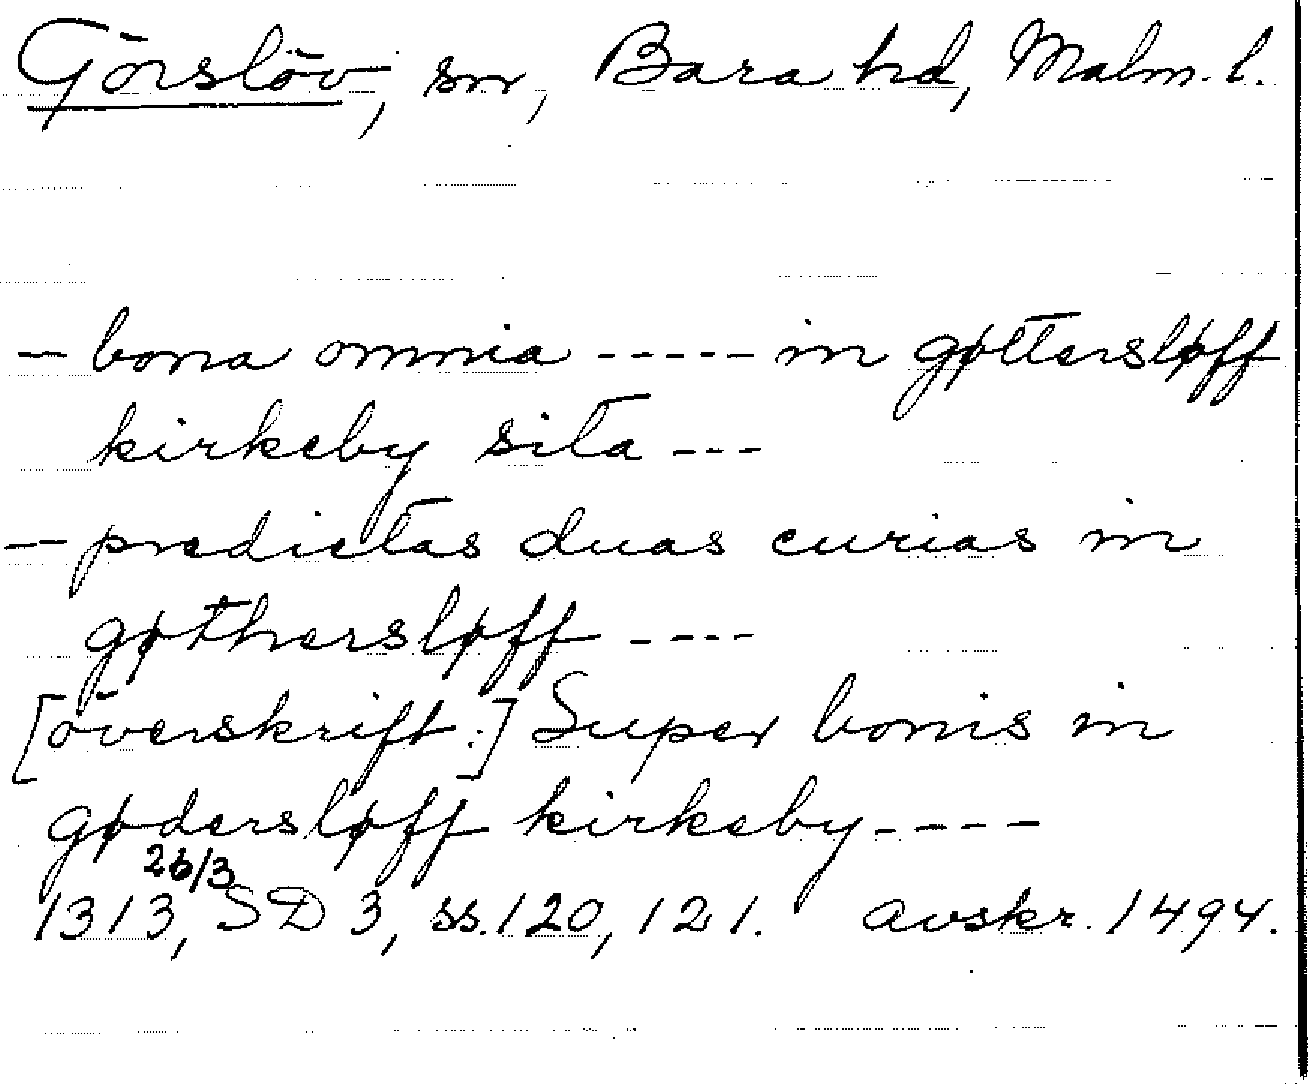 Görslöv, sn, Bara hd, Malm. l.
- bona omnia ----- in gøttersløff
kirkeby sita ---
- predictas duas curias in
gøthersløff ----
[överskrift:] Super bonis in
gødersløff kirkeby ----
26/3
1313, SD 3, ss. 120, 121. avskr. 1494.